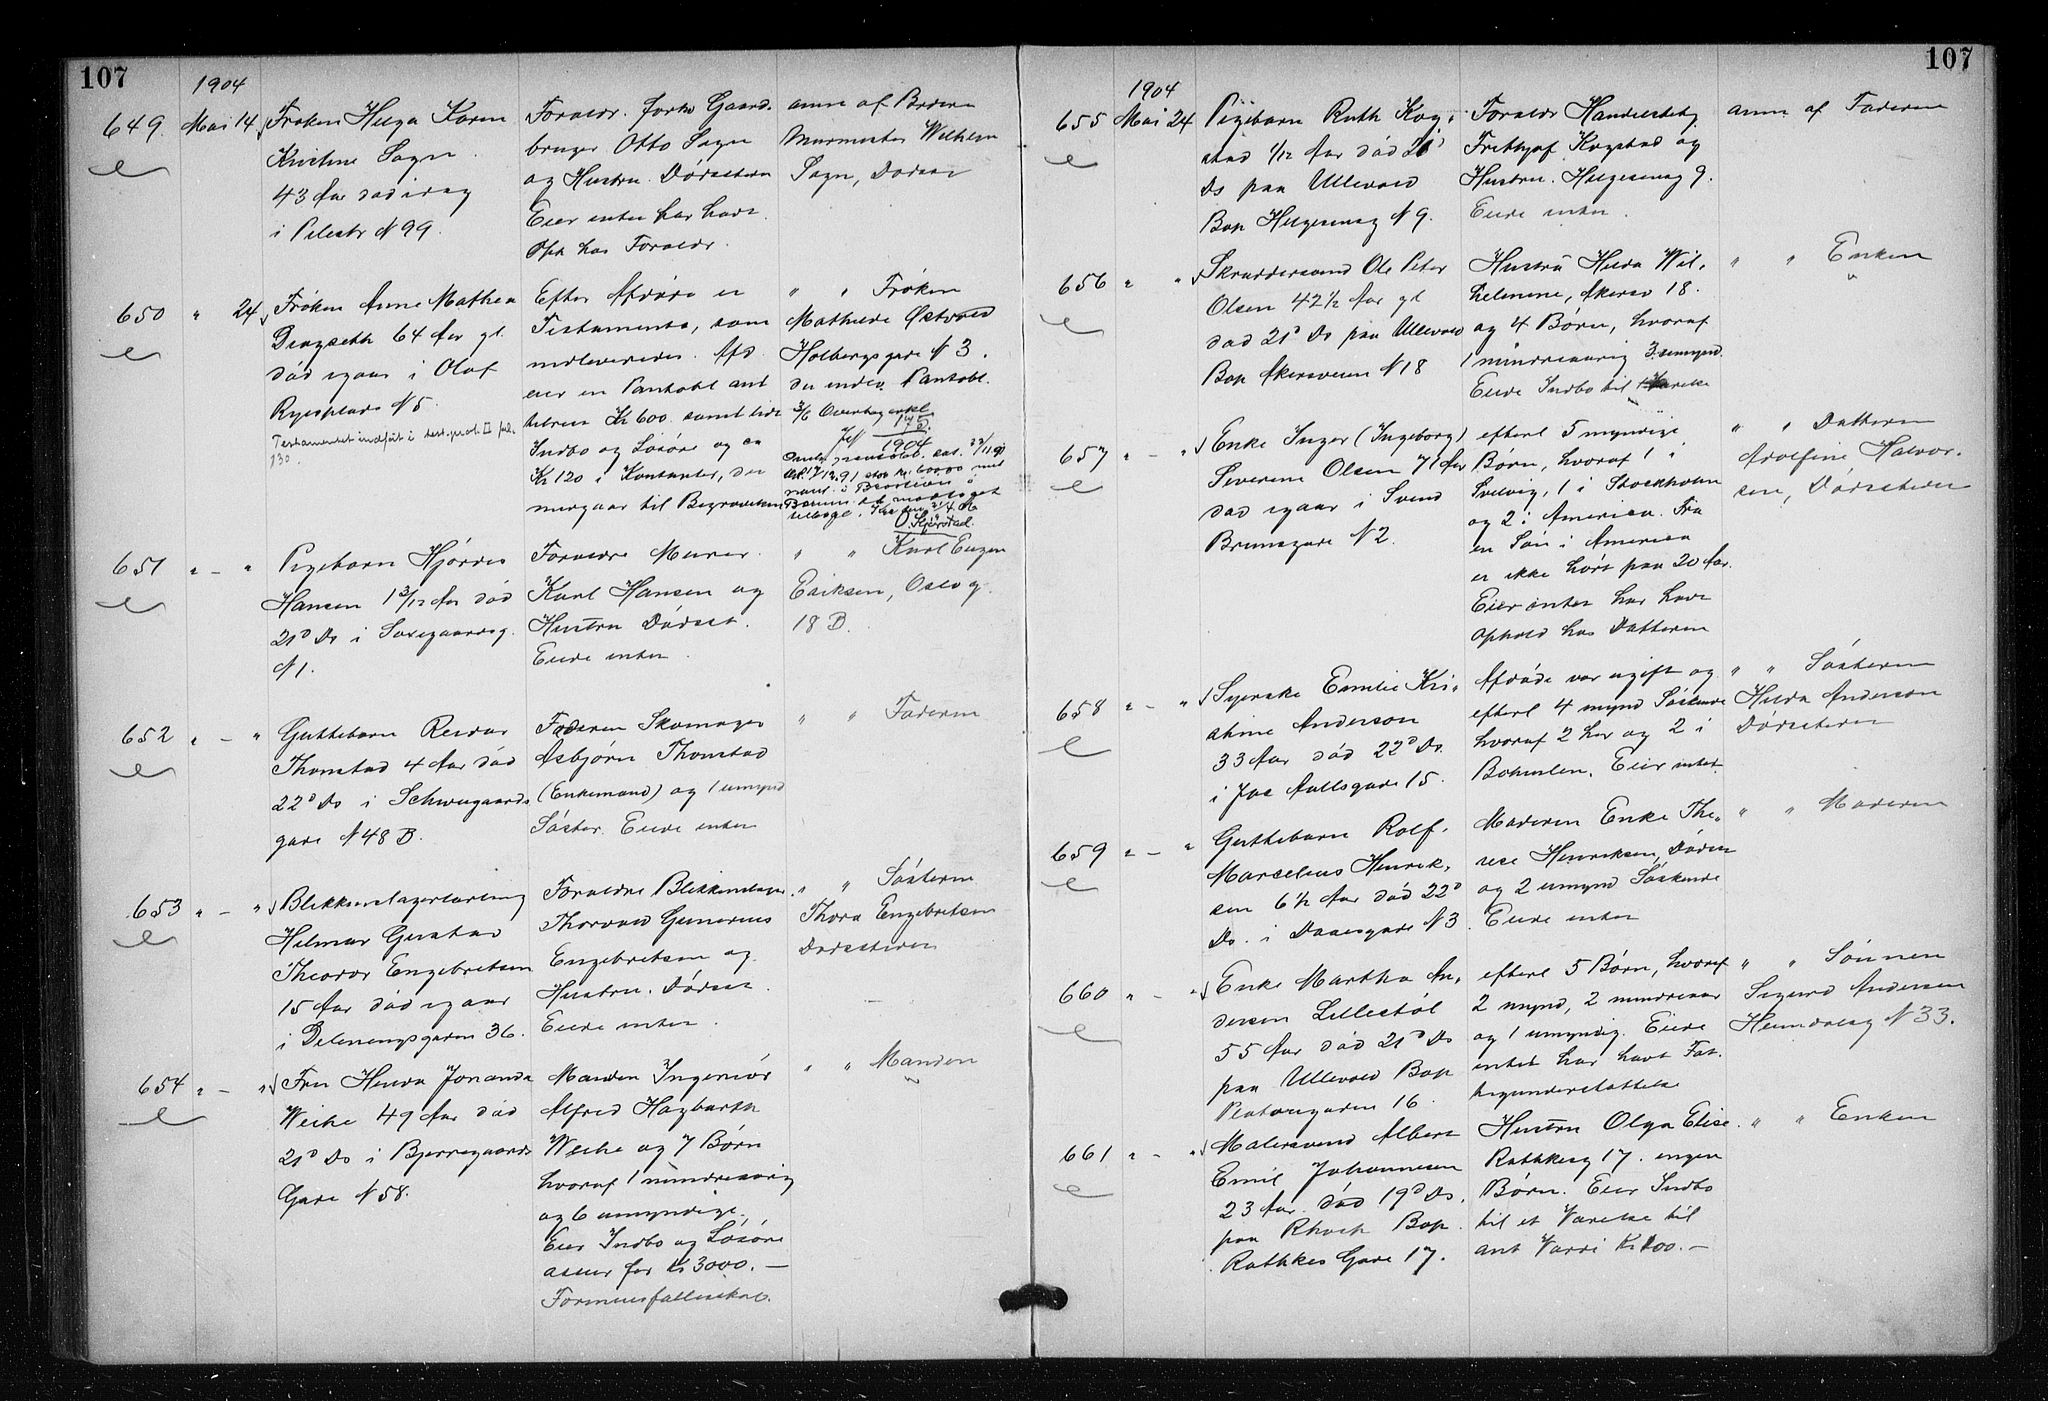 107
1904
649. Mai 14
Frøken Helga Karen
Kristine Sogn
43 Aar død idag
i Pilestr N 99.
Forældr. forhv Gaard
bruger Otto Sogn
og Hustru. Dødsetern
Eier intet har havt
Oph hos Forældr.
anm af Broderen
Murmester Wilhelm
Sogn, Dødsst
650 " 24
Frøken Anne Mathea
Dragseth 64 Aar gl.
død igaar i Olaf
Ryesplads N 5.
Testamentet indført i test.prot. II fol.
130.
Efter Afdøde er
Testamente, som
indleveredes. Afd.
eier en Pantobl ant
Kr 600 samt lidt
Indbo og Løsøre og ca
Kr 120 i Kontanter, der
medgaar til Begravelsen
" " Frøken
Mathilde Østvold
Holbergsgade N 3.
der indlev Pantobl.
3/6 Overtag erkl
Jf 175/1904
O. Skjørstad.
651 " — "
Pigebarn Hjørdis
Hansen 1 3/12 Aar død
21d Ds i Saxegaardsg.
N 1.
Forældre Murer
Karl Hansen og
Hustru Dødsst.
Eiede intet.
" " Karl Eugen
Eriksen, Oslo g.
18 B.
652 " — "
Guttebarn Reidar
Thomstad 4 Aar død
22d Ds i Schweigaards
gade N 48 B.
Faderen Skomager
Asbjørn Thomstad
(Enkemand) og 1 umynd
Søster. Eiede intet
" " Faderen
653 " — "
Blikkenslagerlærling
Hilmar Gustav
Theodor Engebretsen
15 Aar død igaar
i Delenengsgaden 36.
Forældre Blikkenslager
Thorvald Gunerius
Engebretsen og
Hustru. Dødsst.
Eiede intet.
" " Søsteren
Thora Engebretsen
Dødsstedet
654 " — "
Fru Hulda Jonanda
Weike 49 Aar død
21d Ds i Bjerregaards
Gade N 58.
Manden Ingeniør
Alfred Hagbarth
Weike og 7 Børn
hvoraf 1 mindreaarig
og 6 umyndige.
Eier Indbo og Løsøre
assur for Kr 3000.—
Formuesfællesskab.
" " Manden
107
1904
655 Mai 24
Pigebarn Ruth Kog-
stad 1/12 Aar død 21d
Ds paa Ullevold
Bop Helgesensg N 9.
Forældr Handelsbetj.
Frithjof Kogstad og
Hustru. Helgesensg 9.
Eiede intet.
anm af Faderen
656 " "
Skræddersvend Ole Peter
Olsen 42 1/2 Aar gl
død 21d Ds paa Ullevold
Bop Akersveien N 18
Hustru Hilda Wil-
helmine, Akersv 18.
og 4 Børn, hvoraf
1 mindreaarig 3 umynd.
Eiede Indbo til 1 Værelse
" " Enken
657 " — "
Enke Inger (Ingeborg)
Severine Olsen 71 Aar
død igaar i Svend
Brunsgade N 2.
efterl 5 myndige
Børn, hvoraf 1 i
Svelvig, 1 i Stockholm
og 2 i America. Fra
en Søn i America
er ikke hørt paa 20 Aar.
Eier intet har havt
Ophold hos Datteren
" " Datteren
Adolfine Halvor-
sen, Dødsstedet
658 " — "
Syerske Emilie Kri-
stine Anderson
33 Aar død 22d Ds.
i Jac Aallsgade 15.
Afdøde var ugift og
efterl 4 mynd Søskende
hvoraf 2 her og 2 i
Bohuslen. Eier intet.
" " Søsteren
Hilda Anderson
Dødsstedet
659 " — "
Guttebarn Rolf
Marcelius Henrik-
sen 6 1/2 Aar død 22d
Ds. i Daaesgade N 3.
Moderen Enke The-
rese Henriksen, Dødsst
og 2 umynd Søskende
Eiede intet
" " Moderen
660 " — "
Enke Martha An-
dersen Lillestøl
55 Aar død 21d Ds
paa Ullevold Bop
Platousgaden 16.
efterl 5 Børn, hvoraf
2 mynd, 2 mindreaar
og 1 umyndig. Eiede
intet har havt Fat-
tigunderstøttelse
" " Sønnen
Sigurd Andersen
Heimdalsg N 33.
661 " — "
Malersvend Albert
Emil Johannesen
23 Aar død 19d Ds.
paa Rhosp Bop.
Rathkes Gade 17.
Hustru Olga Elise
Rathkesg 17. ingen
Børn. Eier Indbo
til et Værelse til
ant Værdi Kr 100.—
" " Enken